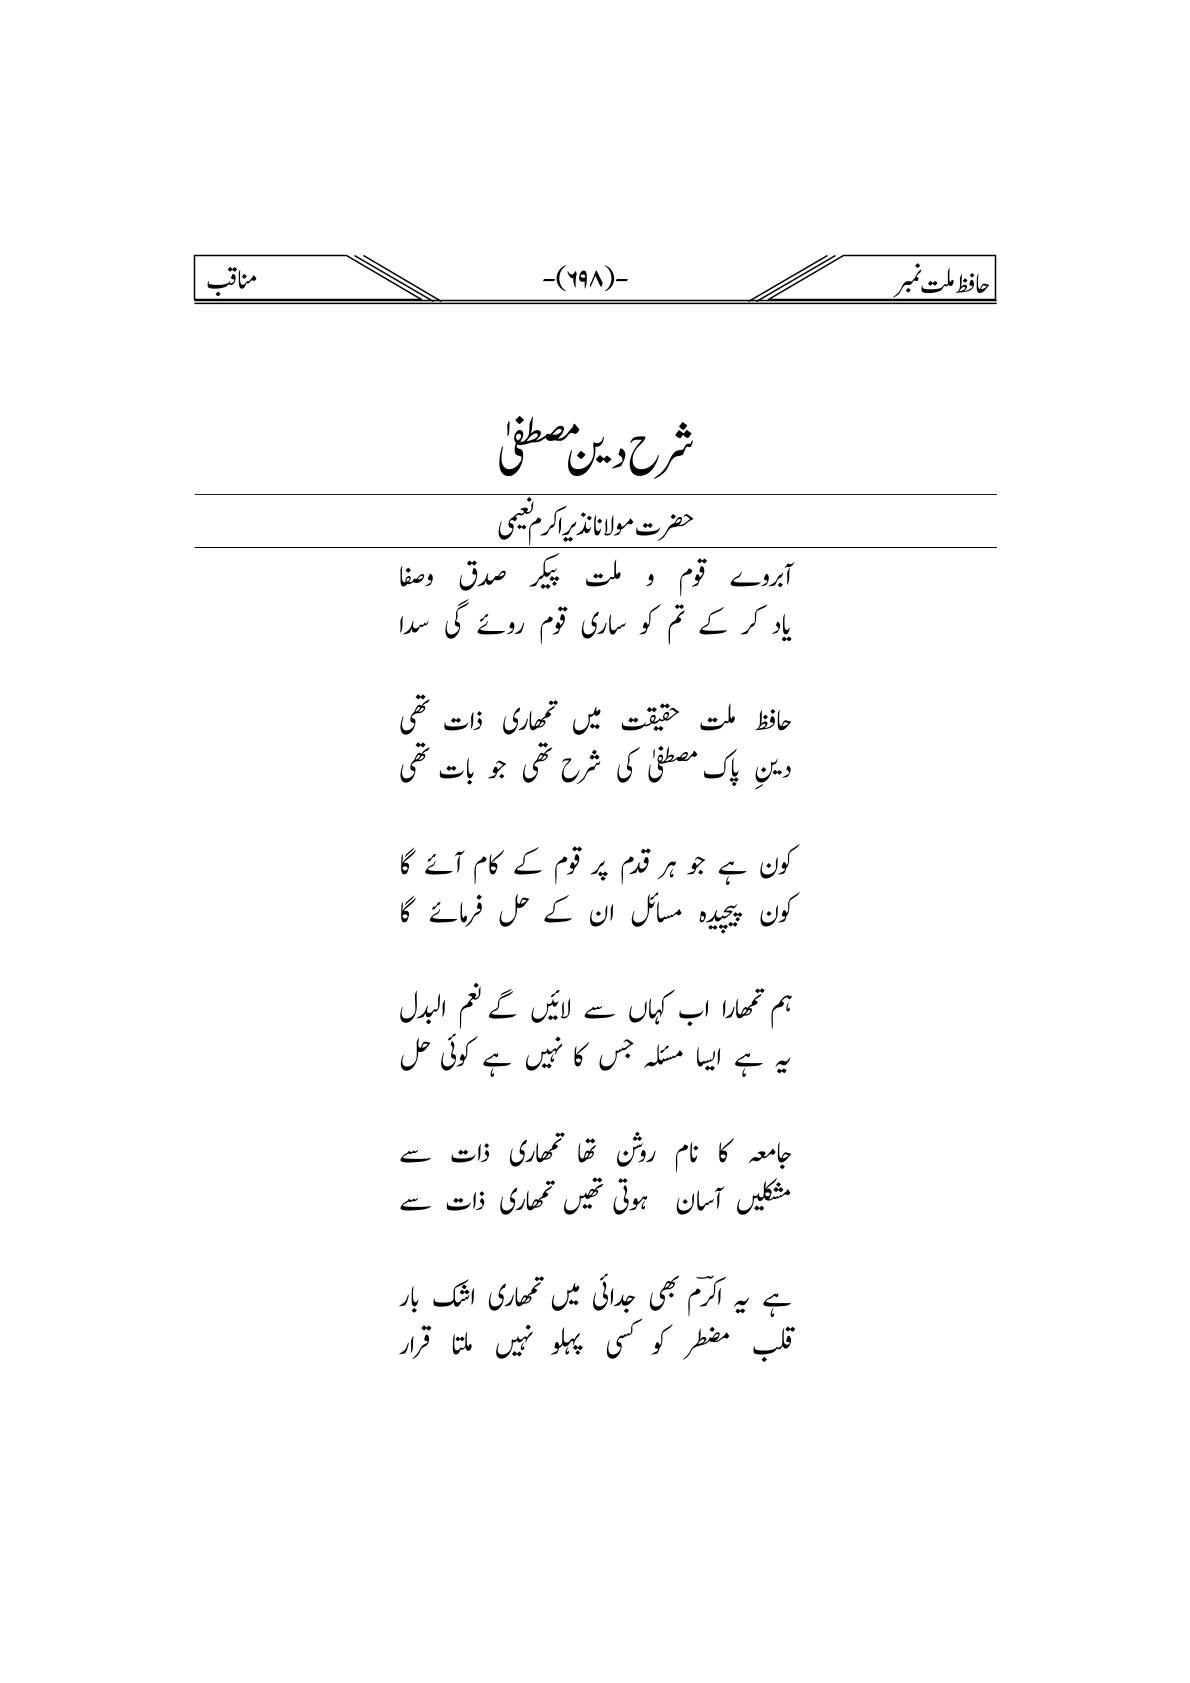 حافظ ملت نمبر -(۶۹۸)- مناقب
شرح دین مصطفیٰ
حضرت مولانا نذیر اکرم نعیمی
آبروے قوم و ملت پیکر صدق وصفا
یاد کر کے تم کو ساری قوم روئے گی سدا
حافظ ملت حقیقت میں تمھاری ذات تھی
دینِ پاک مصطفیٰ کی شرح تھی جو بات تھی
کون ہے جو ہر قدم پر قوم کے کام آئے گا
کون پیچیدہ مسائل ان کے حل فرمائے گا
ہم تمھارا اب کہاں سے لائیں گے نعم البدل
یہ ہے ایسا مسئلہ جس کا نہیں ہے کوئی حل
جامعہ کا نام روشن تھا تمھاری ذات سے
مشکلیں آسان ہوتی تھیں تمھاری ذات سے
ہے یہ اکرمؔ بھی جدائی میں تمھاری اشک بار
قلب مضطر کو کسی پہلو نہیں ملتا قرار